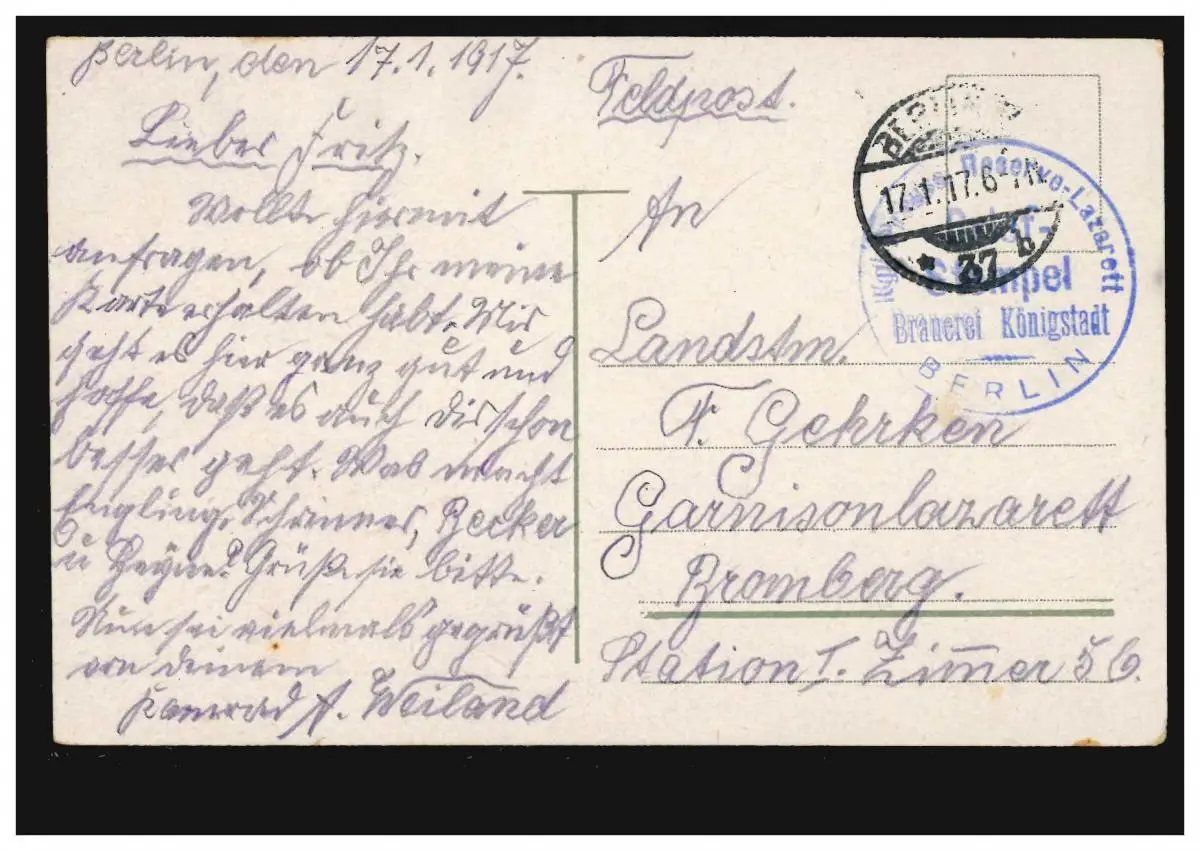 Berlin, den 17.1.1917.
Lieber Fritz.
Wollte hiermit
anfragen, ob Ihr meine
Karte erhalten habt. Mir
geht es hier ganz gut und
hoffe, daß es auch dir schon
besser geht. Was macht
Engling, Schrinner, Becker
u Heyne? Grüße sie bitte.
Nun sei vielmals gegrüßt
von deinem
Kamerad A. Weiland
Feldpost.
An
Landstm.
F. Gehrken
Garnisonlazarett
Bromberg.
Station I. Zimmer 56.
BERLIN
17.1.17.6-7N.
* 37 b
Kgl. Preuss. Reserve-Lazarett
Brief-
Stempel
Brauerei Königstadt
BERLIN